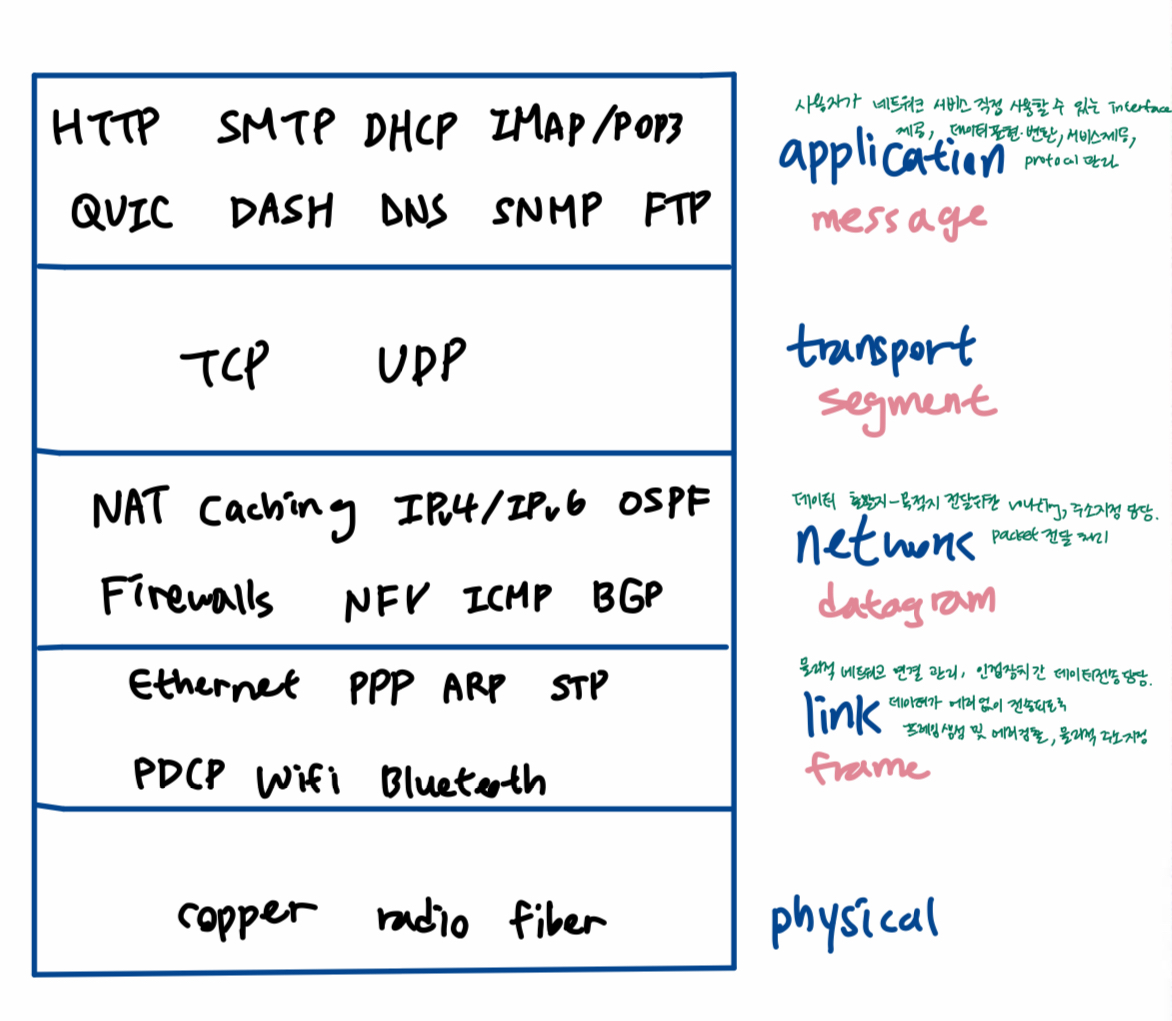 HTTP SMTP DHCP IMAP/POP3
QUIC DASH DNS SNMP FTP
사용자가 네트워크 서비스 직접 사용할 수 있는 interface
제공, 데이터표현·변환, 서비스제공,
application protocol 관리
message
TCP UDP
transport
segment
NAT Caching IPv4/IPv6 OSPF
Firewalls NFV ICMP BGP
데이터 출발지-목적지 전달위한 routing, 주소지정 담당.
network packet 전달 처리
datagram
Ethernet PPP ARP STP
PDCP Wifi Bluetooth
물리적 네트워크 연결 관리, 인접장치 간 데이터전송 담당.
link 데이터가 에러없이 전송되도록
프레임생성 및 에러검출, 물리적 주소지정
frame
copper radio fiber
physical